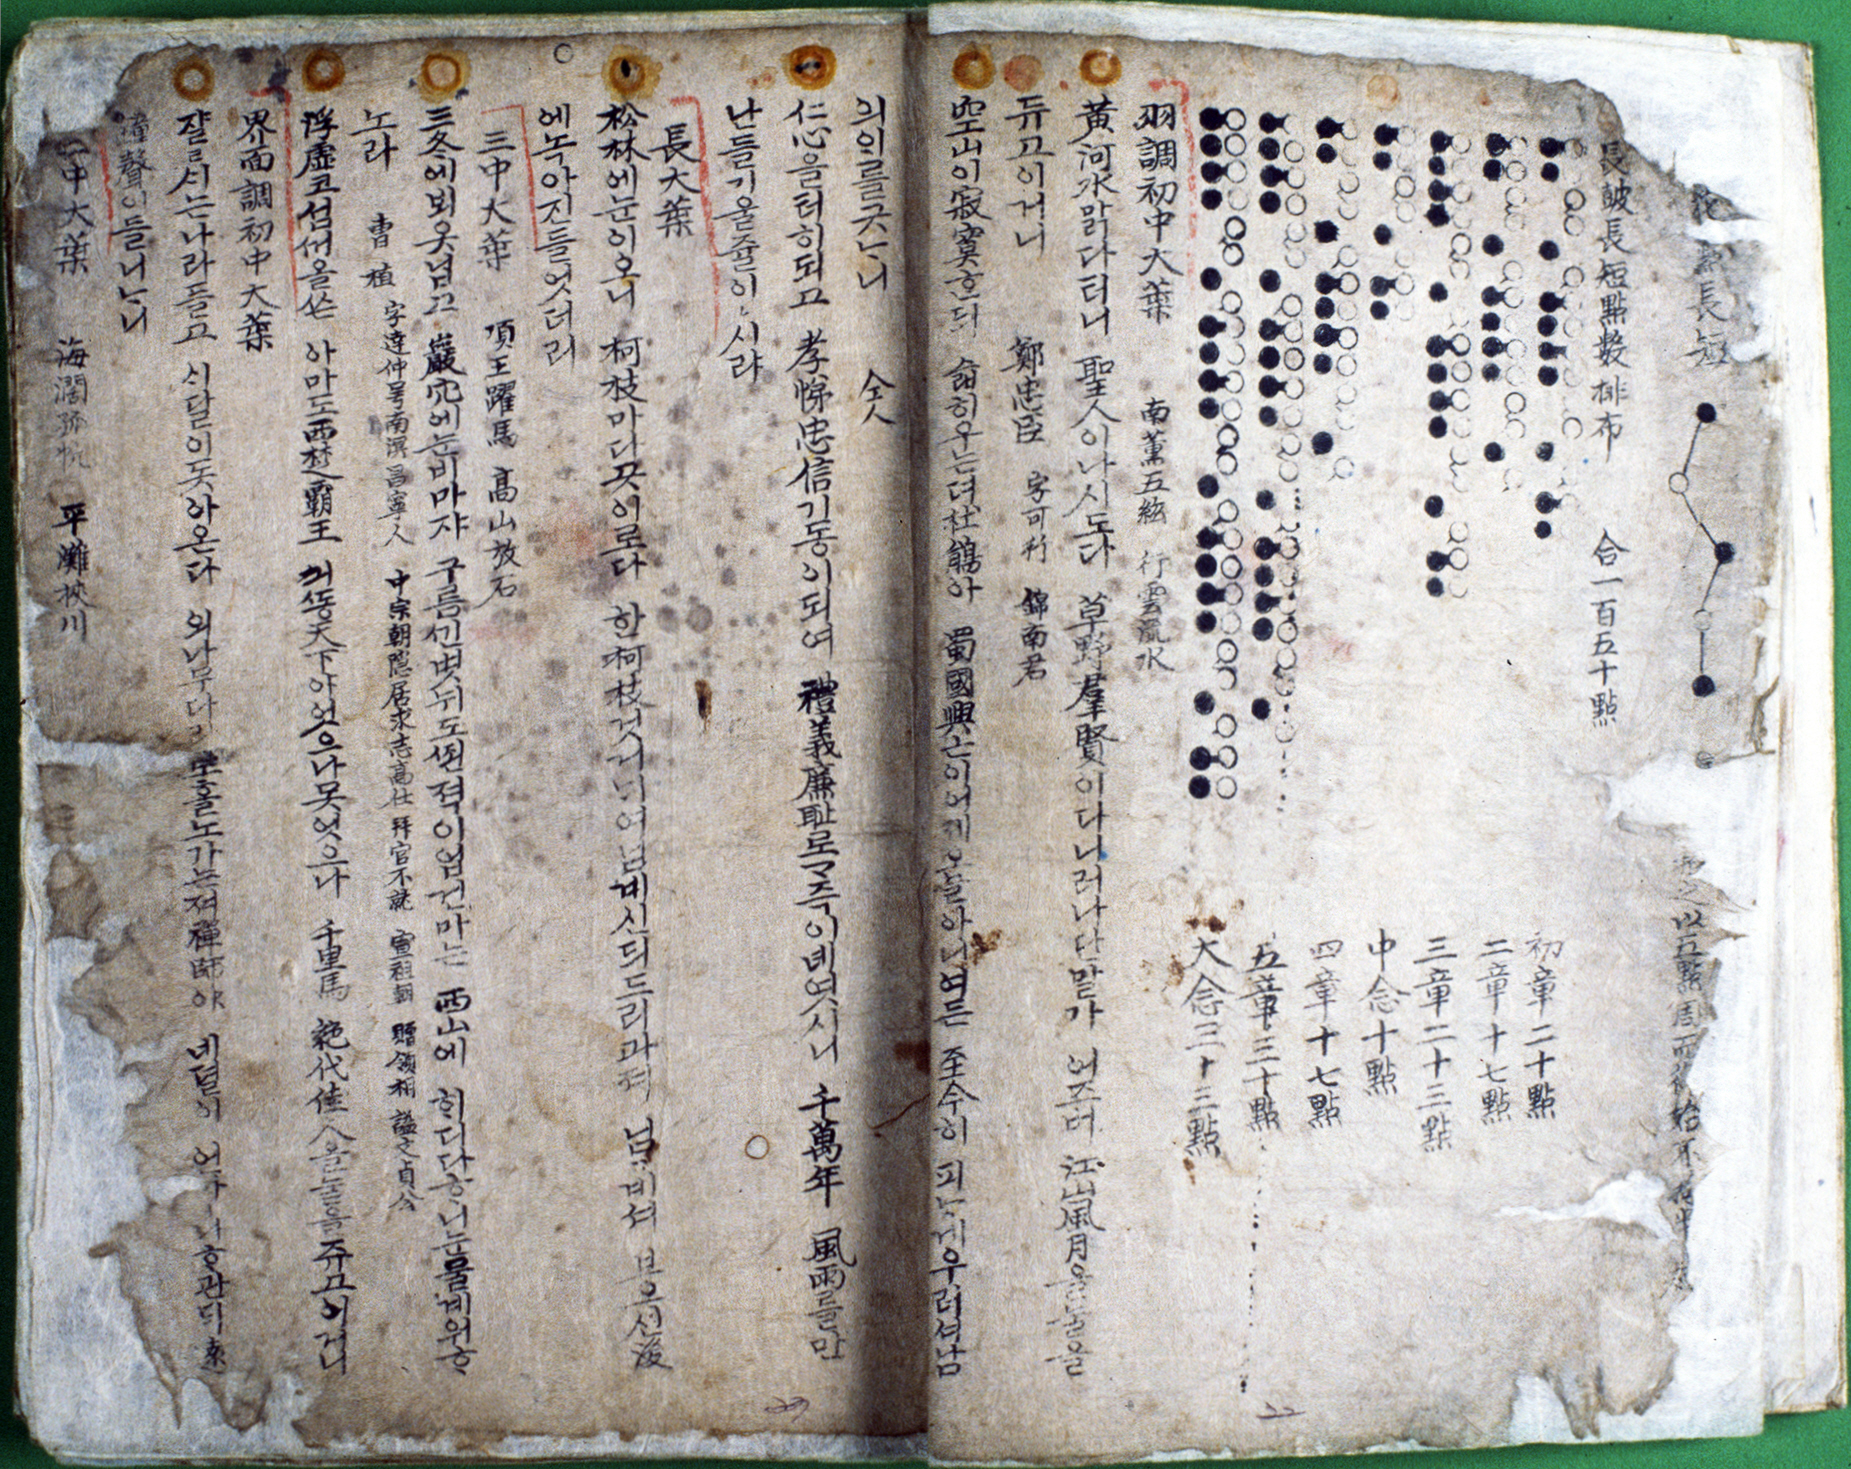 長短
以五點周而 始不
長鼓長短點數排布 合一百五十點
初章二十點
二章十七點
三章二十三點
中念十點
四章十七點
五章三十點
大念三十三點
羽調初中大葉 南薰五絃 行雲流水
黃河水맑다터니 聖人이나시도다 草野羣賢이다니러나단말가 어즈버 江山風月을눌을
듀고이거니 鄭忠臣 字可行 錦南君
空山이寂寞ᄒᆞᆫ듸 슬히우는뎌杜鵑아 蜀國興亡이어제오ᄂᆞᆯ아니여든 至今히 피나게우러셔남
의이를긋ᄂᆞ니 仝人
仁心을터히되고 孝悌忠信기동이되여 禮義廉耻로ᄀᆞ즉이녜엿시니 千萬年 風雨를만
난들기울쥴이시랴
長大葉
松林에눈이오니 柯枝마다곳이로다 한柯枝것거ᄂᆡ여님계신듸드리과져 님계셔 보오신後
에녹아진들엇더리
三中大葉 項王躍馬 高山放石
三冬에뵈옷닙고 巖穴에눈비마쟈 구름ᄭᅵᆫ볏뉘도ᄶᅬᆫ적이업건마는 西山에 ᄒᆡ디다ᄒᆞ니눈물계워ᄒᆞ
노라 曺植 字達仲号南溟昌寧人 中宗朝隱居求志高仕 拜官不就 宣祖朝 贈領相 謚文貞公
浮虛코섬꺼올쓴 아마도西楚霸王 긔ᄯᅩᆼ天下야엇으나못엇으나 千里馬 絶代佳人을눌을쥬고이거니
界面調初中大葉
쟐ᄉᆡ는나라들고 ᄉᆡ달이돗아온다 외나무다리로홀노가는져禪師야 네뎔이 언마나ᄒᆞ관ᄃᆡ遠
鐘聲이들니ᄂᆞ니
二中大葉 海濶孤帆 平灘挾川